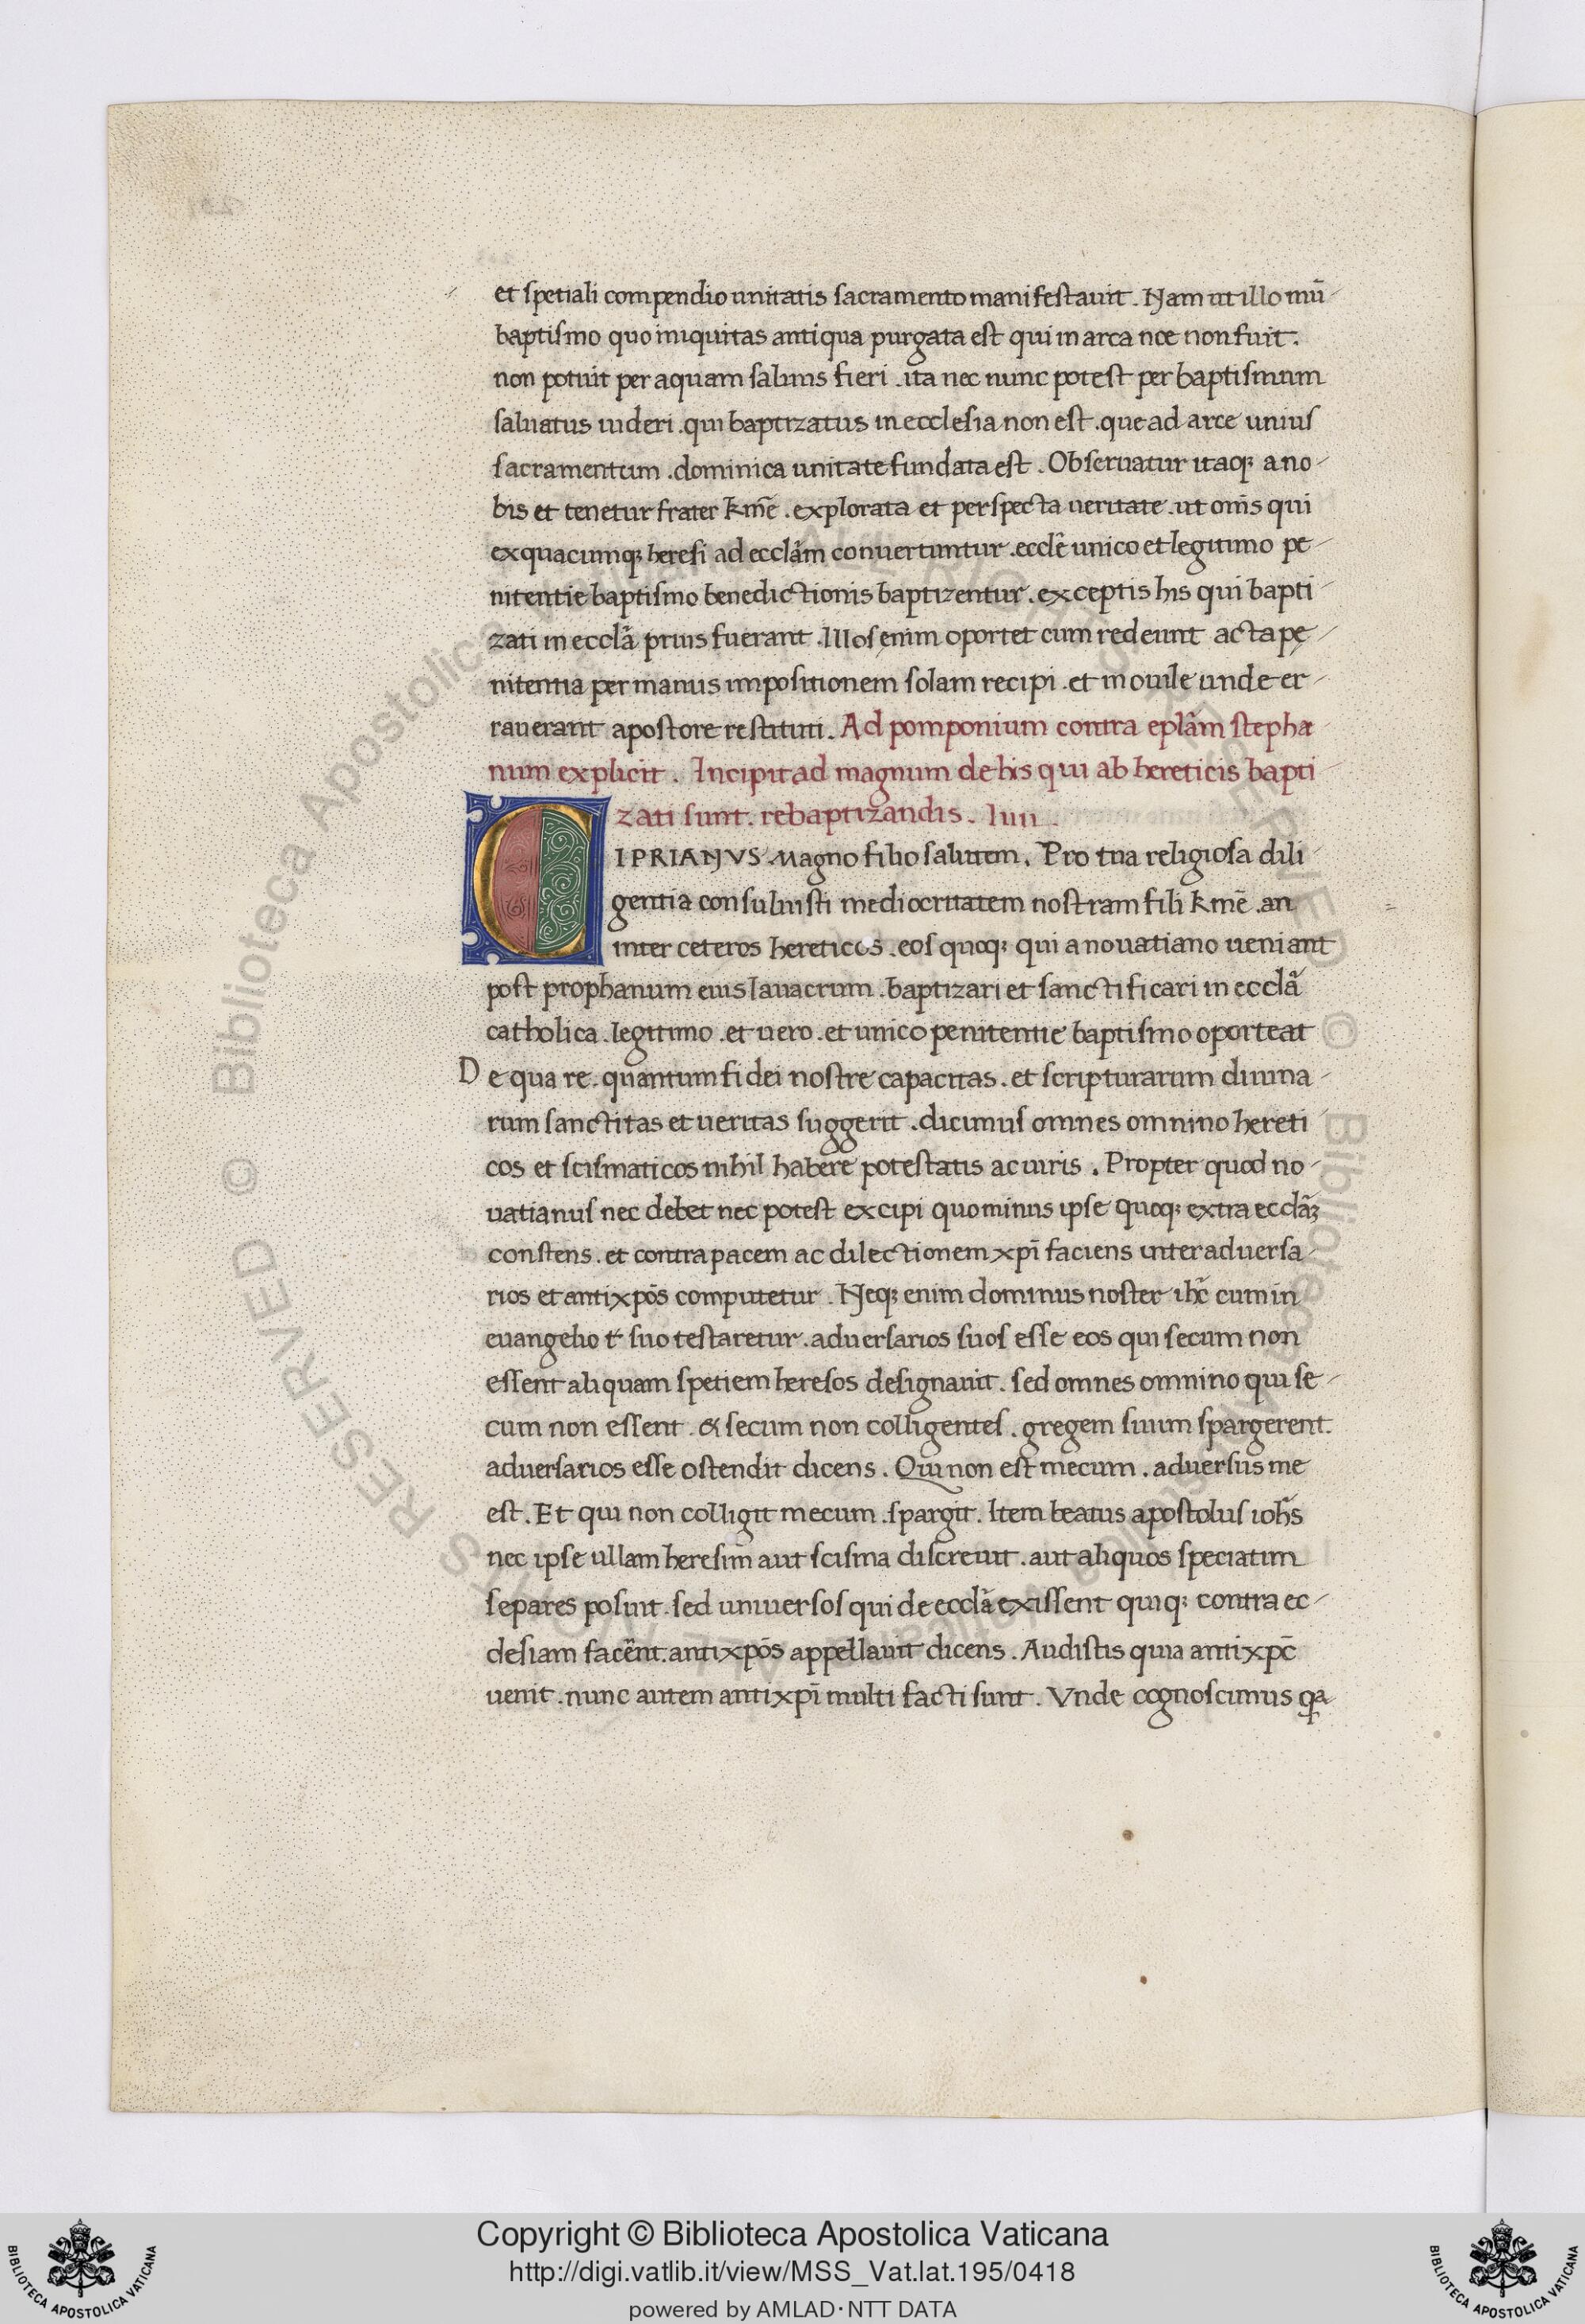 et spetiali compendio unitatis sacramento manifestauit. Nam ut illo mū
baptismo quo iniquitas antiqua purgata est qui in arca noe non fuit.
non potuit per aquam saluus fieri. ita nec nunc potest per baptismum
saluatus uideri. qui baptizatus in ecclesia non est. que ad arce unius
sacramentum. dominica unitate fundata est. Obseruatur itaq; a no
bis et tenetur frater kmē. explorata et perspecta ueritate. ut om̄s qui
ex quacumq; heresi ad eccl̄am conuertuntur. eccl̄e unico et legitimo pe
nitentie baptismo benedictionis baptizentur. exceptis his qui bapti
zati in eccl̄a prius fuerant. Illos enim oportet cum redeunt acta pę
nitentia per manus impositionem solam recipi. et in ouile unde er
rauerant apostore restitui. Ad pomponium contra epl̄am stepha
num explicit. Incipit ad magnum de his qui ab hereticis bapti
zati sunt. rebaptizandis. Iııı.
CIPRIANVS Magno filio salutem. Pro tua religiosa dili
gentia consuluisti mediocritatem nostram fili kmē. an
inter ceteros hereticos. eos quoq; qui a nouatiano ueniant
post prophanum eius lauacrum. baptizari et sanctificari in eccl̄a
catholica. legitimo. et uero. et unico penitentie baptismo oporteat
De qua re. quantum fidei nostre capacitas. et scripturarum diuina
rum sanctitas et ueritas suggerit. dicimus omnes omnino hereti
cos et scismaticos nihil habere potestatis ac iuris. Propter quod no
uatianus nec debet nec potest excipi quominus ipse quoq; extra eccl̄aꝫ
constens. et contra pacem ac dilectionem xp̄i faciens inter aduersa
rios et antixp̄os computetur. Neq; enim dominus noster ih̄c cum in
euangelio suo testaretur. aduersarios suos esse eos qui secum non
essent aliquam spetiem heresos designauit. sed omnes omnino qui se
cum non essent. & secum non colligentes. gregem suum spargerent.
aduersarios esse ostendit dicens. Qui non est mecum. aduersus me
est. Et qui non colligit mecum. spargit. Item beatus apostolus ioh̄s
nec ipse ullam heresim aut scisma discreuit. aut aliquos speciatim
separes posuit. sed uniuersos qui de eccl̄a exissent quiq; contra ec
clesiam facēnt. antixp̄os appellauit dicens. Audistis quia antixp̄c
uenit. nunc autem antixp̄i multi facti sunt. Vnde cognoscimus qa
Copyright © Biblioteca Apostolica Vaticana
http://digi.vatlib.it/view/MSS_Vat.lat.195/0418
powered by AMLAD·NTT DATA
BIBLIOTECA APOSTOLICA VATICANA
BIBLIOTECA APOSTOLICA VATICANA